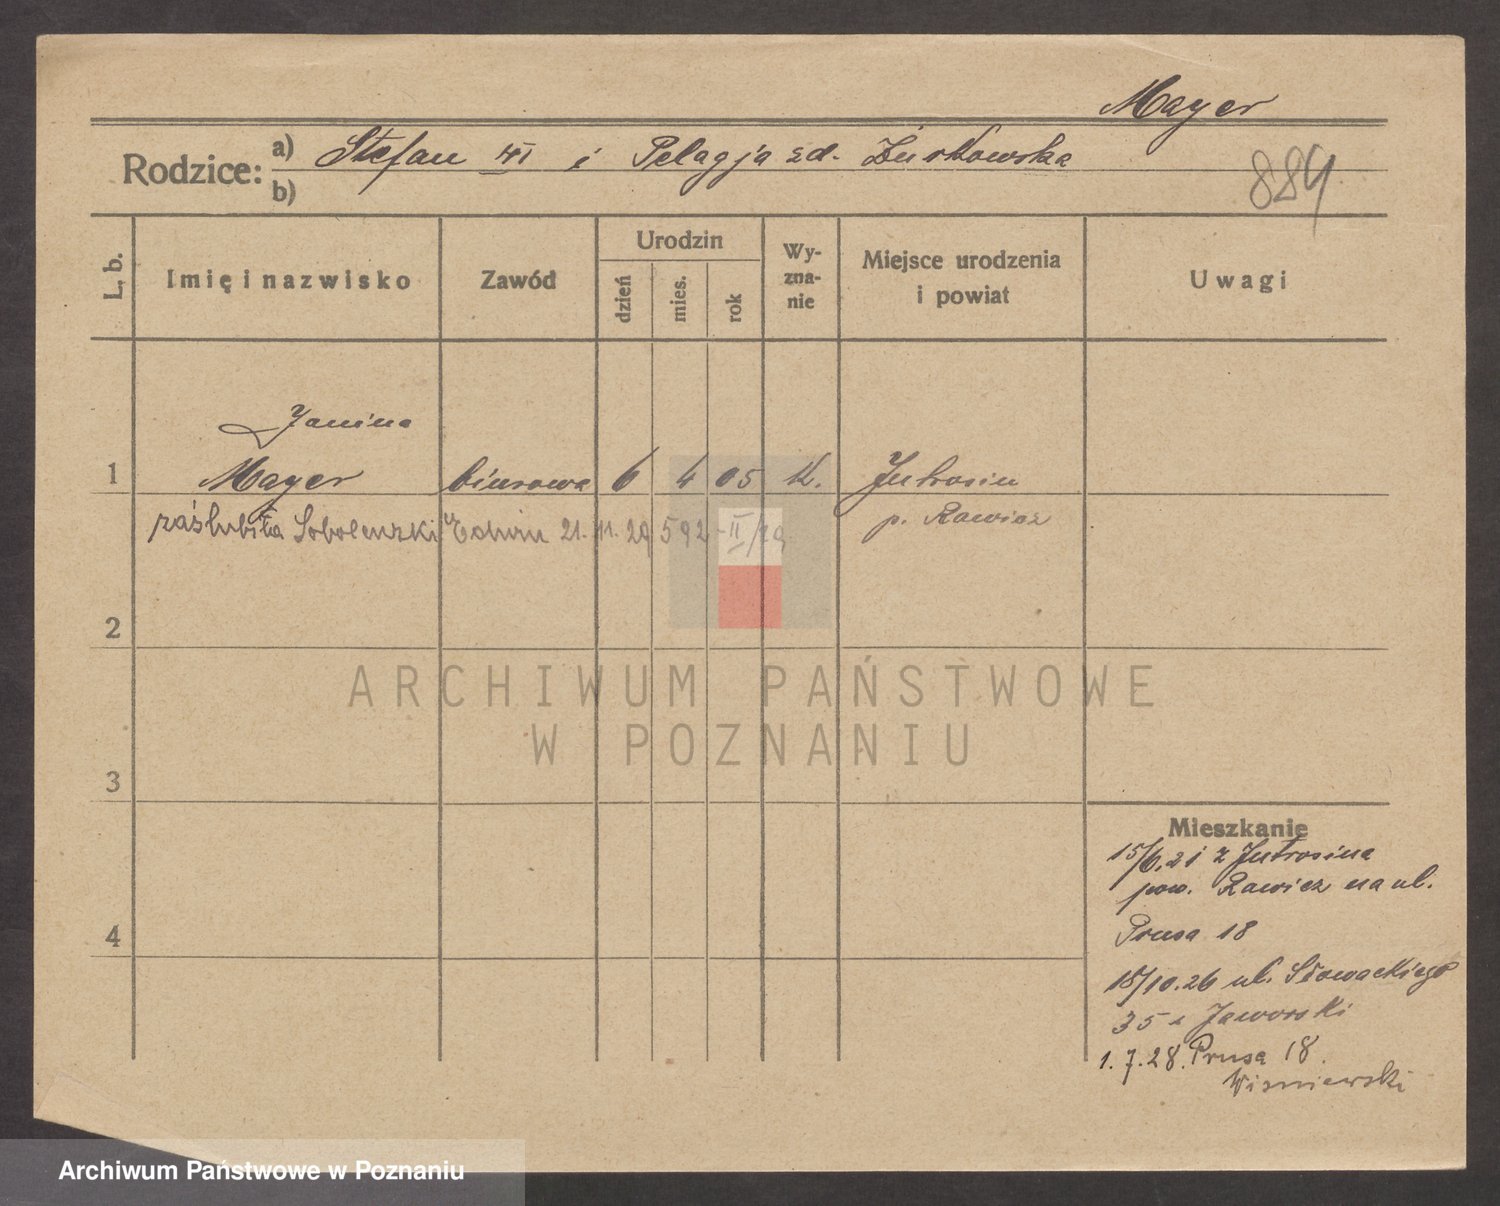 Mayer
Rodzice: a) Stefan i Pelagja zd. Żurkowska
b)
889
L. b.
Imię i nazwisko
Zawód
Urodzin
dzień
mies.
rok
Wy-
zna-
nie
Miejsce urodzenia
i powiat
Uwagi
Janina
1 Mayer biurowa 6 4 05 K. Jutrosin
zaślubiła Sobolewski Edwin 21. 11. 29 592 - II/29 p. Rawicz
2
ARCHIWUM PAŃSTWOWE
W POZNANIU
3
Mieszkanie
15/6.21 z Jutrosina
pow. Rawicz na ul.
Prusa 18
4
18/10.26 ul. Słowackiego
35 Jaworski
1.7.28. Prusa 18.
Wiśniewski
Archiwum Państwowe w Poznaniu